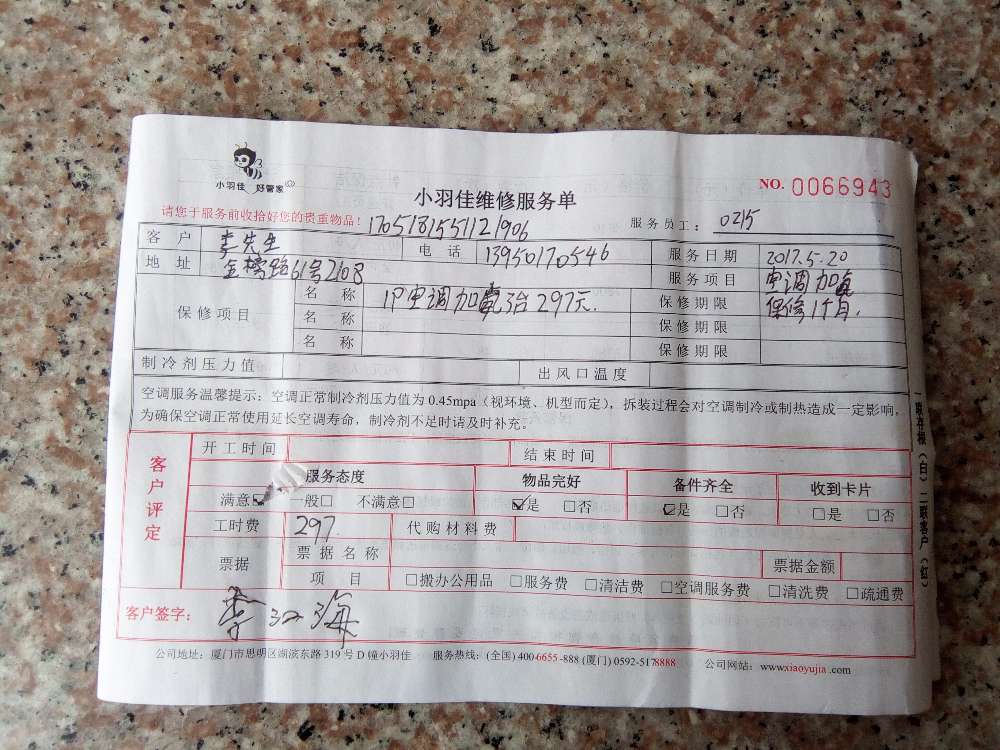 小羽佳 好管家
NO. 0066943
小羽佳维修服务单
请您于服务前收拾好您的贵重物品!
1705181551121906
服务员工: 0215
客户 李先生 电话 13950170546 服务日期 2017.5.20
地址 金榜路61号2108 服务项目 空调加氟
保修项目 名称 1P空调加氟3台297元. 保修期限 保修1个月.
名称 保修期限
名称 保修期限
制冷剂压力值 出风口温度
空调服务温馨提示:空调正常制冷剂压力值为0.45mpa(视环境、机型而定),拆装过程会对空调制冷或制热造成一定影响,
为确保空调正常使用延长空调寿命,制冷剂不足时请及时补充。
客户评定
开工时间 结束时间
服务态度 物品完好 备件齐全 收到卡片
满意☑ 一般□ 不满意□ ☑是 □否 ☑是 □否 □是 □否
工时费 297 代购材料费
票据 票据名称 票据金额
项目 □搬办公用品 □服务费 □清洁费 □空调服务费 □清洗费 □疏通费
客户签字:
公司地址:厦门市思明区湖滨东路319号D幢小羽佳 服务热线:(全国)400-6655-888 (厦门)0592-5178888 公司网站:www.xiaoyujia.com
一联存根(白)二联客户(红)